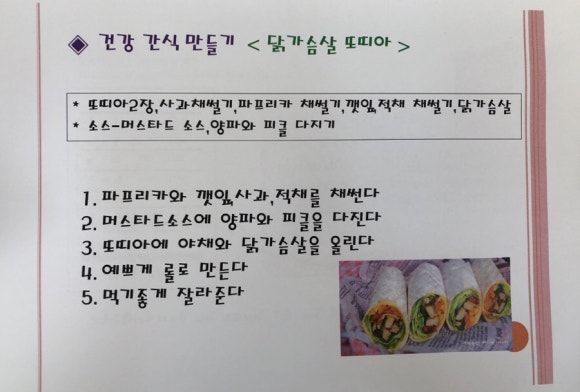 ◈ 건강 간식 만들기 < 닭가슴살 또띠아 >
* 또띠아2장,사과채썰기,파프리카 채썰기,깻잎,적채 채썰기,닭가슴살
* 소스-머스타드 소스,양파와 피클 다지기
1. 파프리카와 깻잎,사과,적채를 채썬다
2. 머스타드소스에 양파와 피클을 다진다
3. 또띠아에 야채와 닭가슴살을 올린다
4. 예쁘게 롤로 만든다
5. 먹기좋게 잘라준다